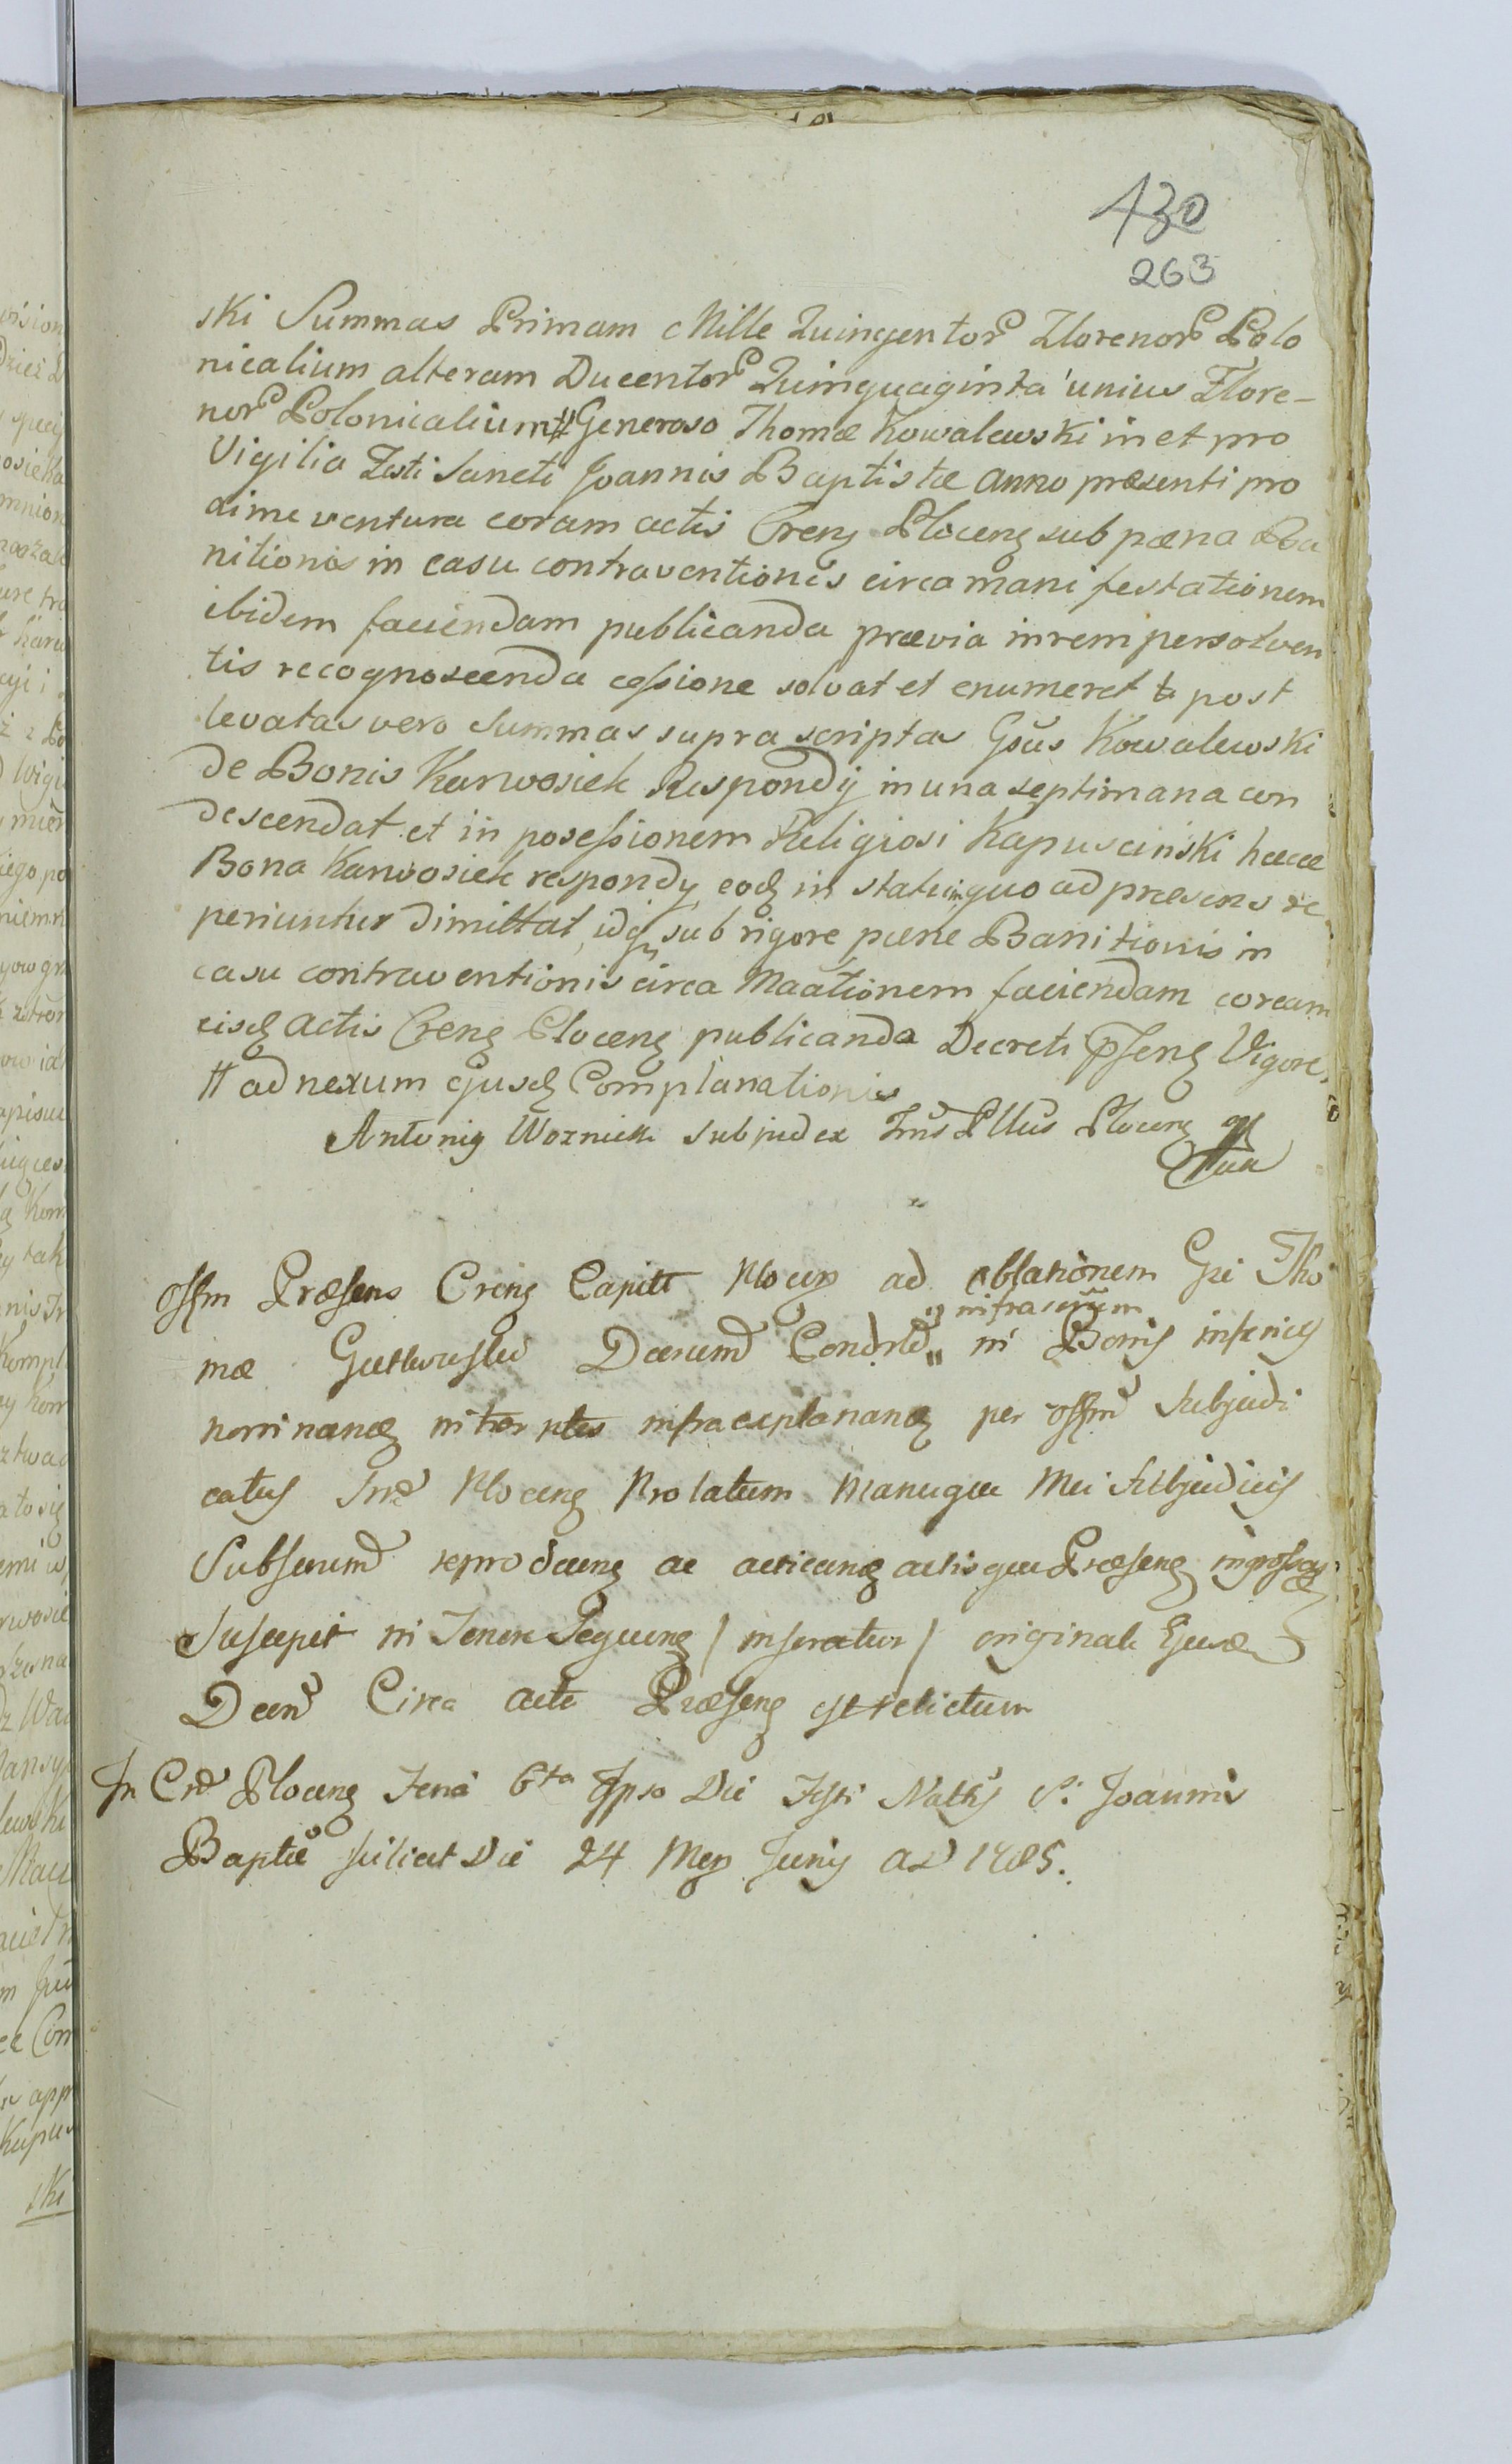 430
263
ski Summas Primam Mille Quingentor Florenor Polo
nicalium alteram Ducentor Quinquaginta unius Flore-
nor Polonicalium # Generoso Thomæ Kowalewski in et pro
Vigilia Festi Sancti Joannis Baptistæ Anno præsenti pro
xime ventura coram actis Crenz Plocenz sub pæna Ba
nitionis in casu contraventionis circa manifestationem
ibidem faciendam publicanda prævia in rem persolven
tis recognoscenda cessione solvat et enumeret post
levatas vero Summas supra scriptas Gsus Kowalewski
de Bonis Karwosiek Respondÿ in una septimana con
descendat et in possessionem Religiosi Kapuscinski hæcce
Bona Karwosiek respondÿ eod in statu in quo ad præsens re
periuntur dimittat, idq sub rigore pænæ Banitionis in
casu contraventionis circa Maãtionem faciendam coram
eisd Actis Crenz Plocenz publicanda Decreti Psenz Vigore.
# ad nexum ejusd Complanationis
Antonig Wozniek Subjudex Trus Pllus Plocenz
Offm Præsens Crenz Capitt Plocen ad oblationem Gsi Tho
mæ Decrum Condrd in Bonis inferius
infrascrum
nominanz inter ptes infraexplananz per offm Subjudi
catus Trre Plocenz Prolatum Manuque Mei Subjudicis
Subscrum reproducenz ac acticanz actisque Præsenz ingrossan
Suscepit in Tenore Sequenz / inseratur / originale Ejusd
Decri Circa acta Præsenz est relictum
In Cro Plocenz Feria 6ta Ipso Die Festi Natts S. Joannis
Baptæ scilicet Die 24 Mens Junÿ AD 1785.